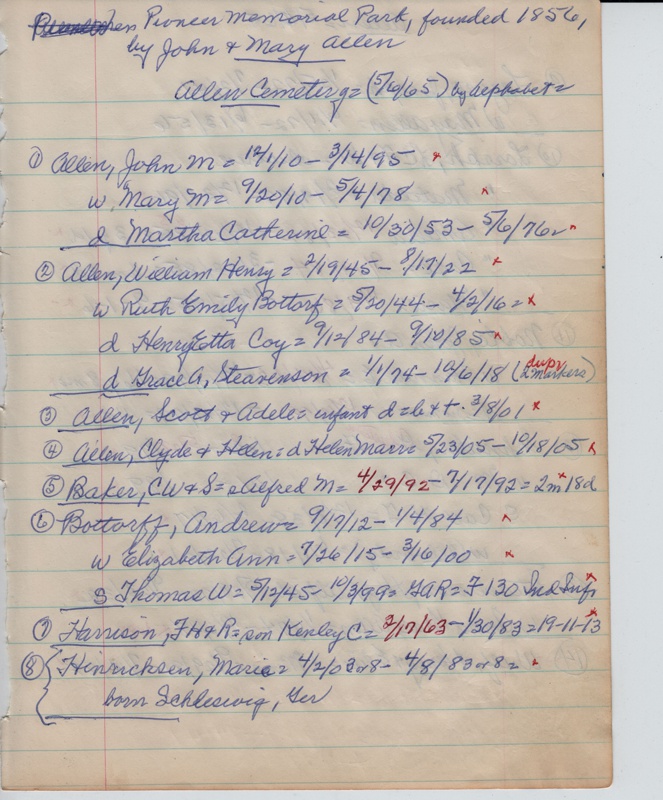 Pioneer Memorial Park, founded 1856,
by John & Mary Allen
Allen Cemetery = (5/6/65) by alphabet =
① Allen, John M = 12/1/10 – 3/14/95 x
w. Mary M = 9/20/10 – 5/4/78 x
d Martha Catherine = 10/30/53 – 5/6/76 x
② Allen, William Henry = 2/19/45 – 8/17/22 x
w Ruth Emily Bottorf = 5/20/44 – 4/2/16 = x
d Henryetta Coy = 9/12/84 – 9/10/85 x
d Grace A, Steavenson = 1/1/74 – 10/6/18 (2 markers) dupr
③ Allen, Scott & Adele = infant d = b & t. 3/8/01 x
④ Allen, Clyde & Helen = d Helen Marr = 5/23/05 – 10/18/05 x
⑤ Baker, CW & S = s Alfred M = 4/29/92 – 7/17/92 = 2m 18d x
⑥ Bottorff, Andrew = 9/17/12 – 1/4/84 x
w Elizabeth Ann = 7/26/15 – 3/16/00 x
s Thomas W = 5/12/45 – 10/3/99 = GAR = F 130 Ind Inf x
⑦ Harrison, FH & R = son Kenley C = 2/17/63 – 1/30/83 = 19-11-13 x
⑧ Hinricksen, Marie = 4/2/03 or 8 – 4/8/83 or 8 = x
born Schleswig, Ger